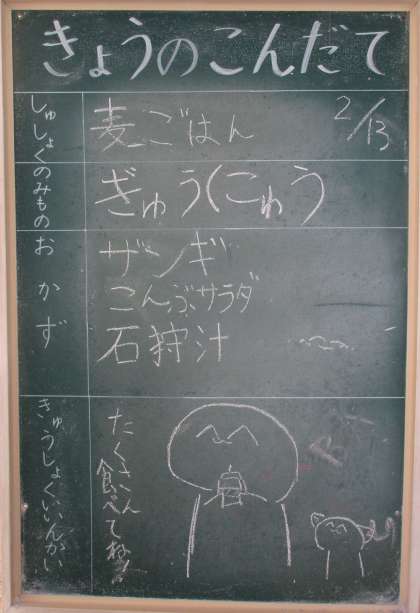 きょうのこんだて
2/13
しゅしょく
麦ごはん
のみもの
ぎゅうにゅう
おかず
ザンギ
こんぶサラダ
石狩汁
きゅうしょくいいんかい
たくさん
食べてね!!